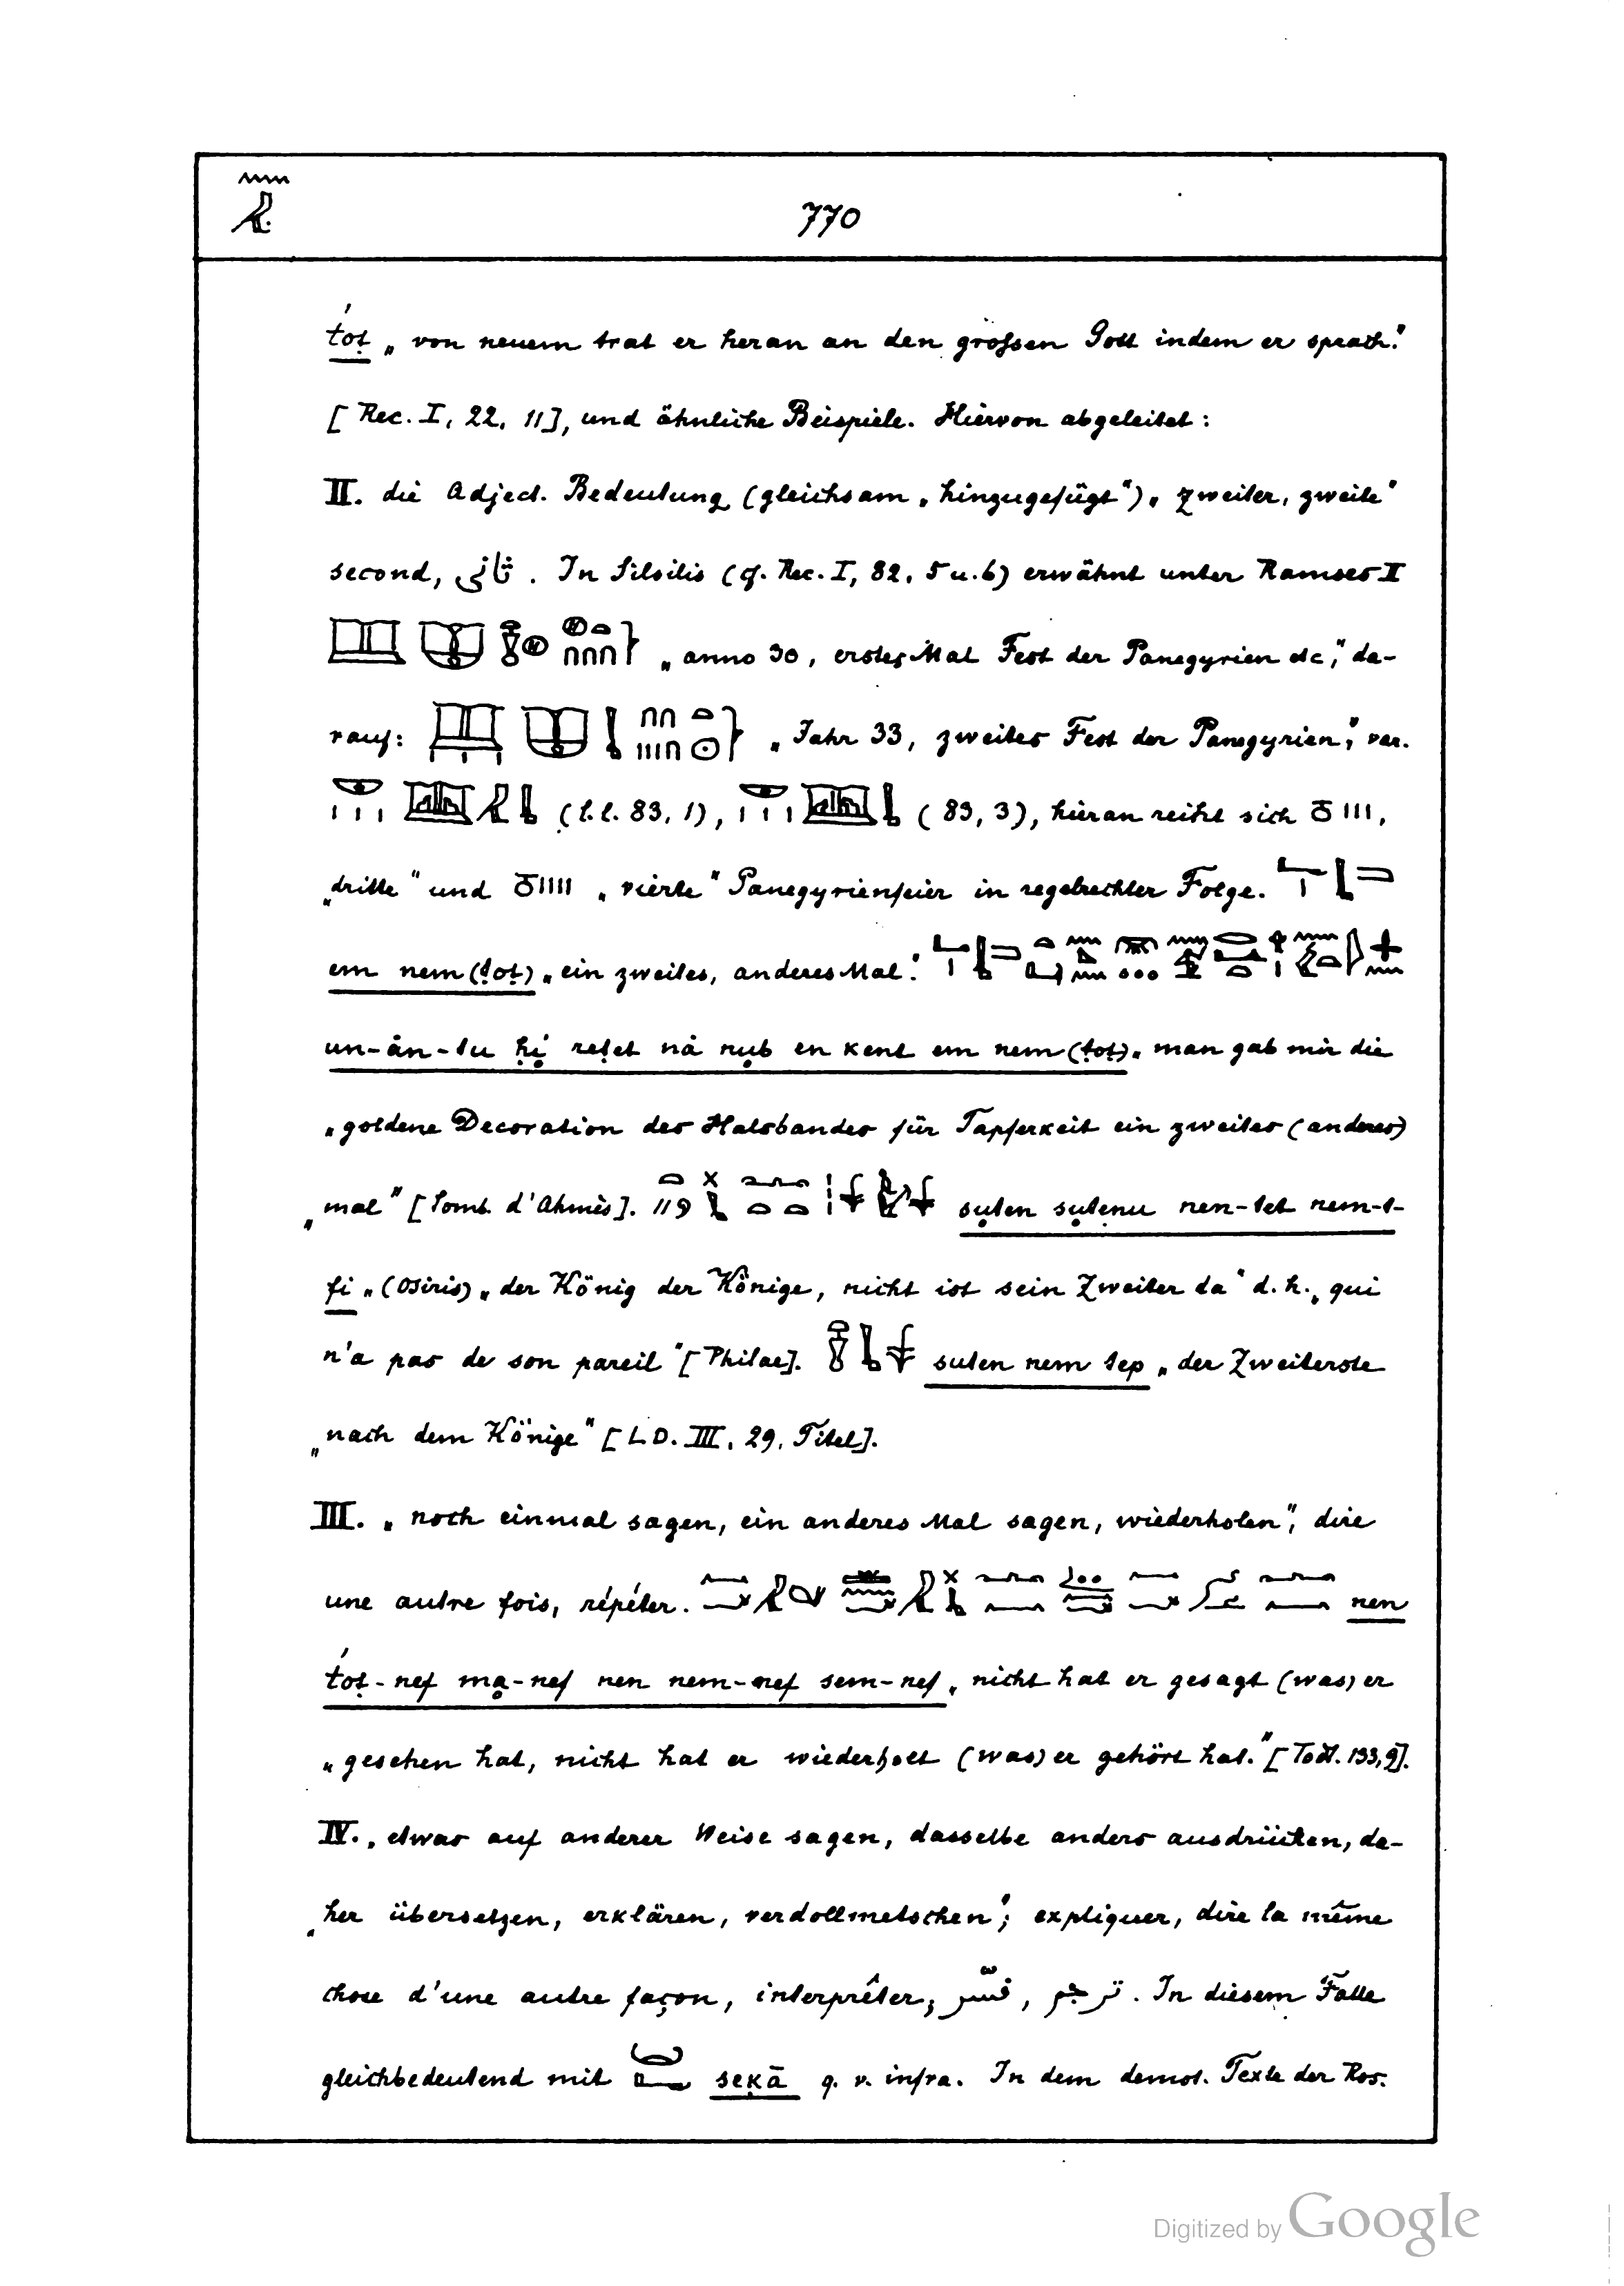 770
ṭoṭ „ von neuem trat er heran an den großen Gott indem er sprach."
[ Rec. I, 22, 11], und ähnliche Beispiele. Hiervon abgeleitet:
II. die Adject. Bedeutung (gleichsam „ hinzugefügt") „ zweiter, zweite"
second, ثانى . In Silsilis (cf. Rec. I, 82, 5 u. 6) erwähnt unter Ramses II
„ anno 30, erstes Mal Fest der Panegyrien etc", da-
rauf: „ Jahr 33, zweites Fest der Panegyrien", var.
(l. l. 83, 1), (83, 3), hieran reiht sich III,
„dritte" und IIII „ vierte" Panegyrienfeier in regelrechter Folge.
em nem (ṭoṭ) „ ein zweites, anderes Mal."
un-ȧn-tu ḥi reṭet nȧ nub en kent em nem (ṭoṭ) „ man gab mir die
„ goldene Decoration des Halsbandes für Tapferkeit ein zweites (anderes)
„ mal" [Tomb. d'Ahmès]. suten sutenu nen-tet nem-t-
fi „ (Osiris) „ der König der Könige, nicht ist sein Zweiter da" d. h. „ qui
n'a pas de son pareil" [Philae]. suten nem sep „ der Zweiterste
„ nach dem Könige" [L D. III, 29, Titel].
III. „ noch einmal sagen, ein anderes Mal sagen, wiederholen", dire
une autre fois, répéter. nen
ṭoṭ-nef ma-nef nen nem-nef sem-nef „ nicht hat er gesagt (was) er
„ gesehen hat, nicht hat er wiederholt (was) er gehört hat." [Todt. 133, 9].
IV. „ etwas auf anderer Weise sagen, dasselbe anders ausdrücken, da-
„ her übersetzen, erklären, verdollmetschen"; expliquer, dire la même
chose d'une autre façon, interprêter; فسّر , ترجم . In diesem Falle
gleichbedeutend mit seḳā q. v. infra. In dem demot. Texte der Ros.
Digitized by Google